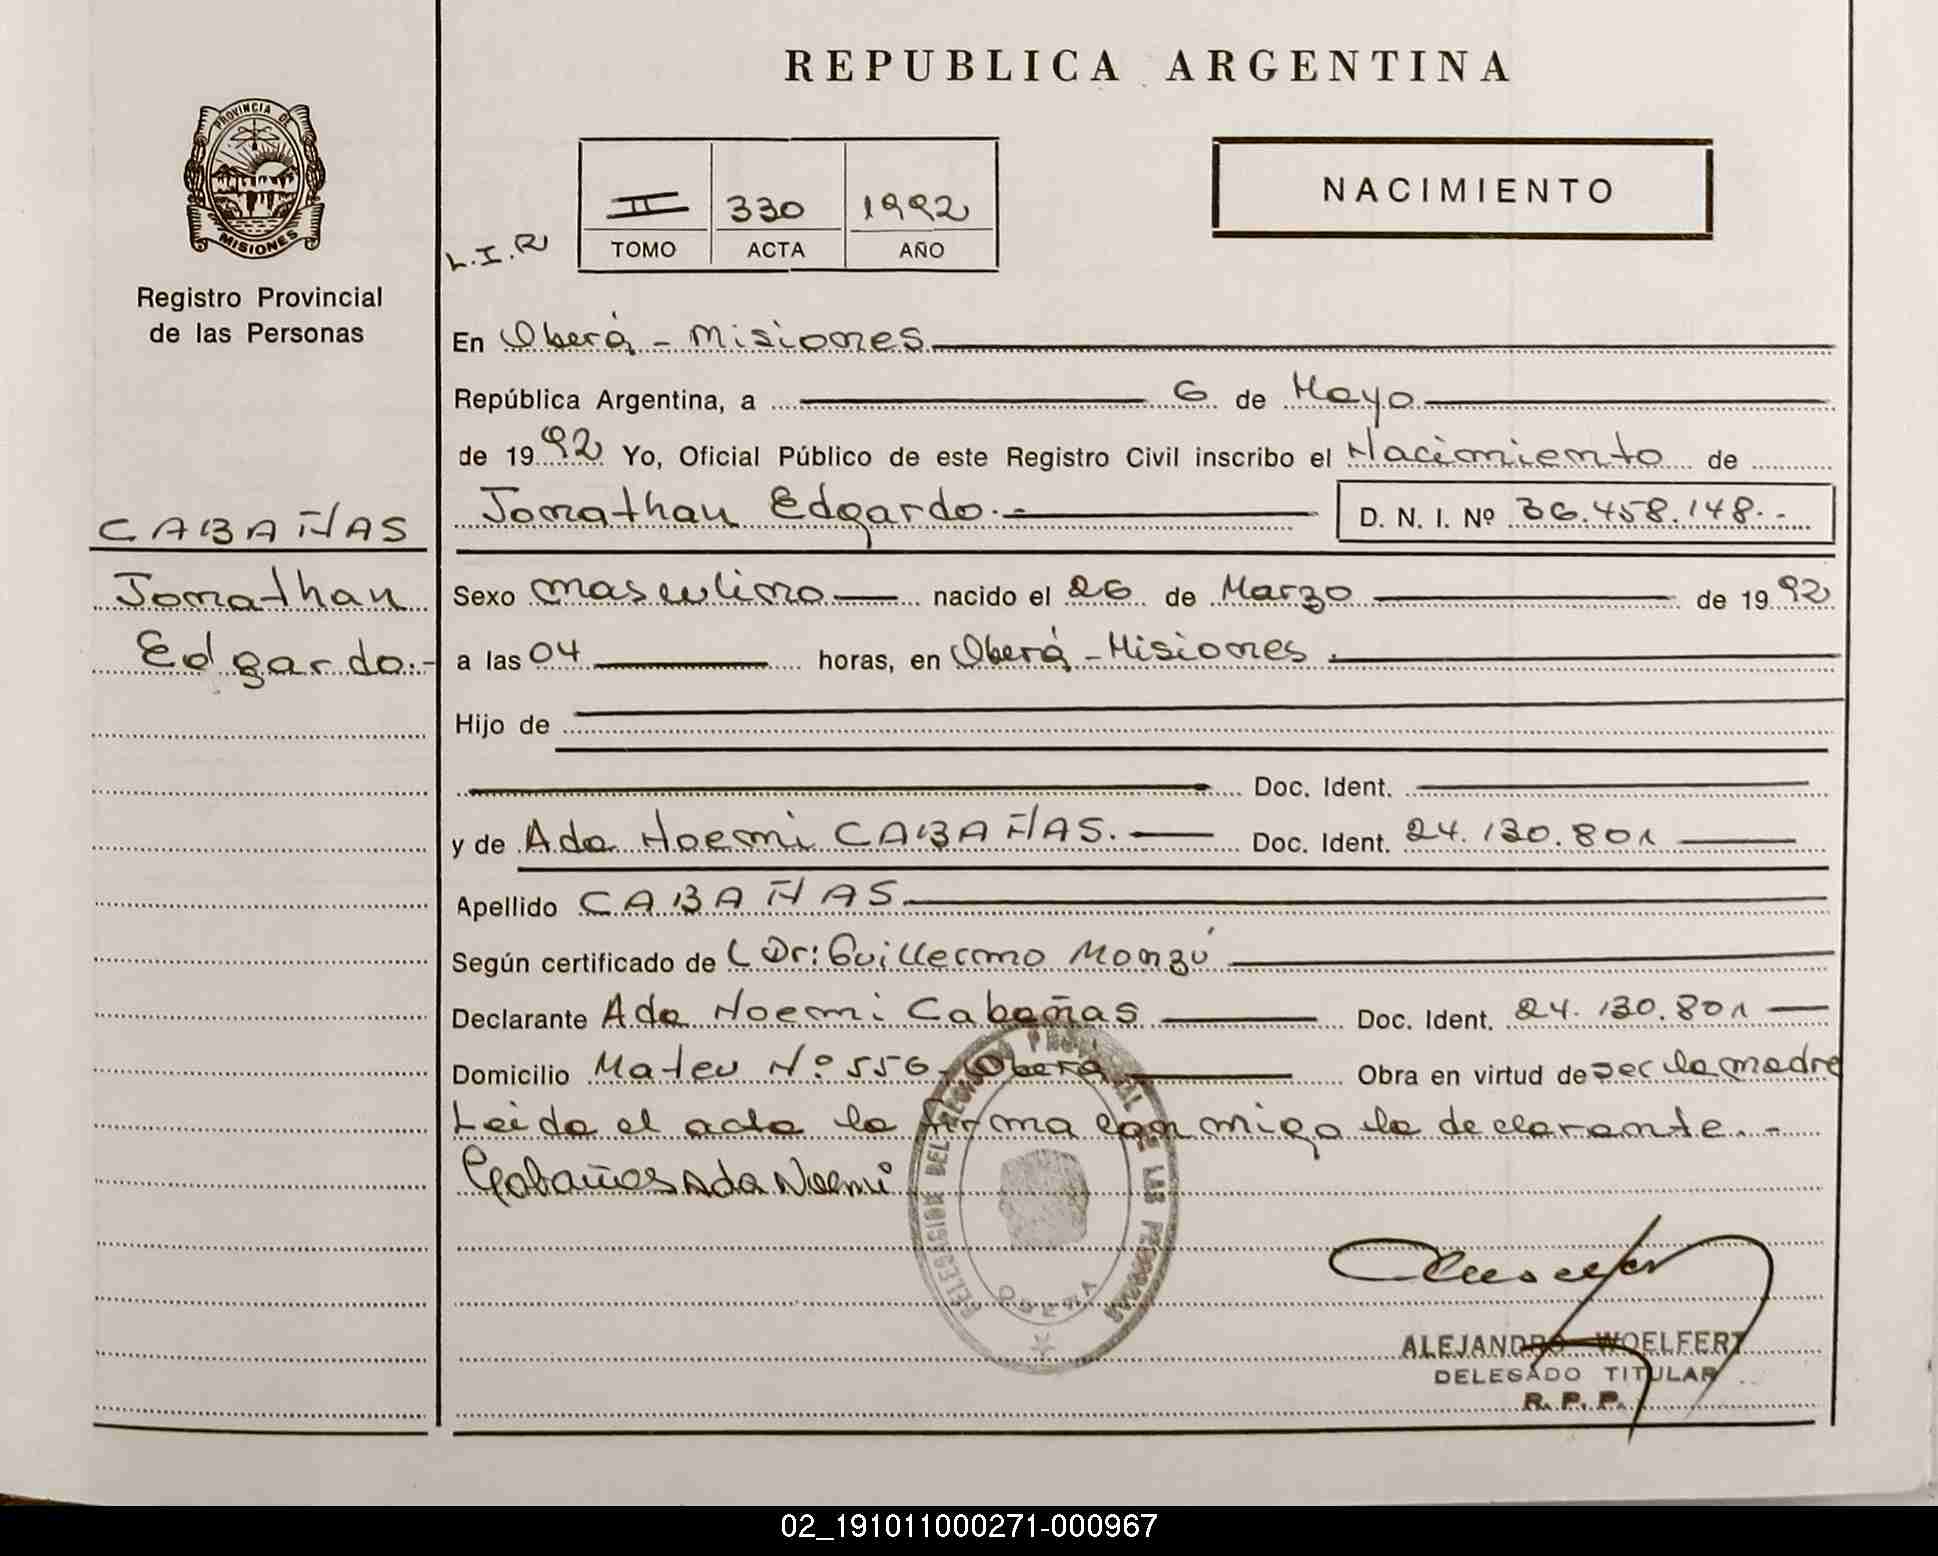 REPUBLICA ARGENTINA
PROVINCIA DE
MISIONES
Registro Provincial
de las Personas
L.I.R
II 330 1992
TOMO ACTA AÑO
NACIMIENTO
En Oberá - Misiones
República Argentina, a 6 de Mayo
de 1992 Yo, Oficial Público de este Registro Civil inscribo el Nacimiento de
Jonathan Edgardo.- D. N. I. Nº 36.458.148.-
CABAÑAS
Jonathan
Edgardo.-
Sexo masculino nacido el 26 de Marzo de 1992
a las 04 horas, en Oberá - Misiones
Hijo de
Doc. Ident.
y de Ada Noemi CABAÑAS. Doc. Ident. 24.130.801
Apellido CABAÑAS
Según certificado de Dr: Guillermo Monzú
Declarante Ada Noemi Cabañas Doc. Ident. 24.130.801
Domicilio Mateu Nº 556 - Oberá Obra en virtud de ser la madre
Leida el acta la firma conmigo la declarante.-
Cabañas Ada Noemi
DELEGACION DEL REGISTRO PROVINCIAL DE LAS PERSONAS
OBERA
ALEJANDRO WOELFERT
DELEGADO TITULAR
R. P. P.
02_191011000271-000967